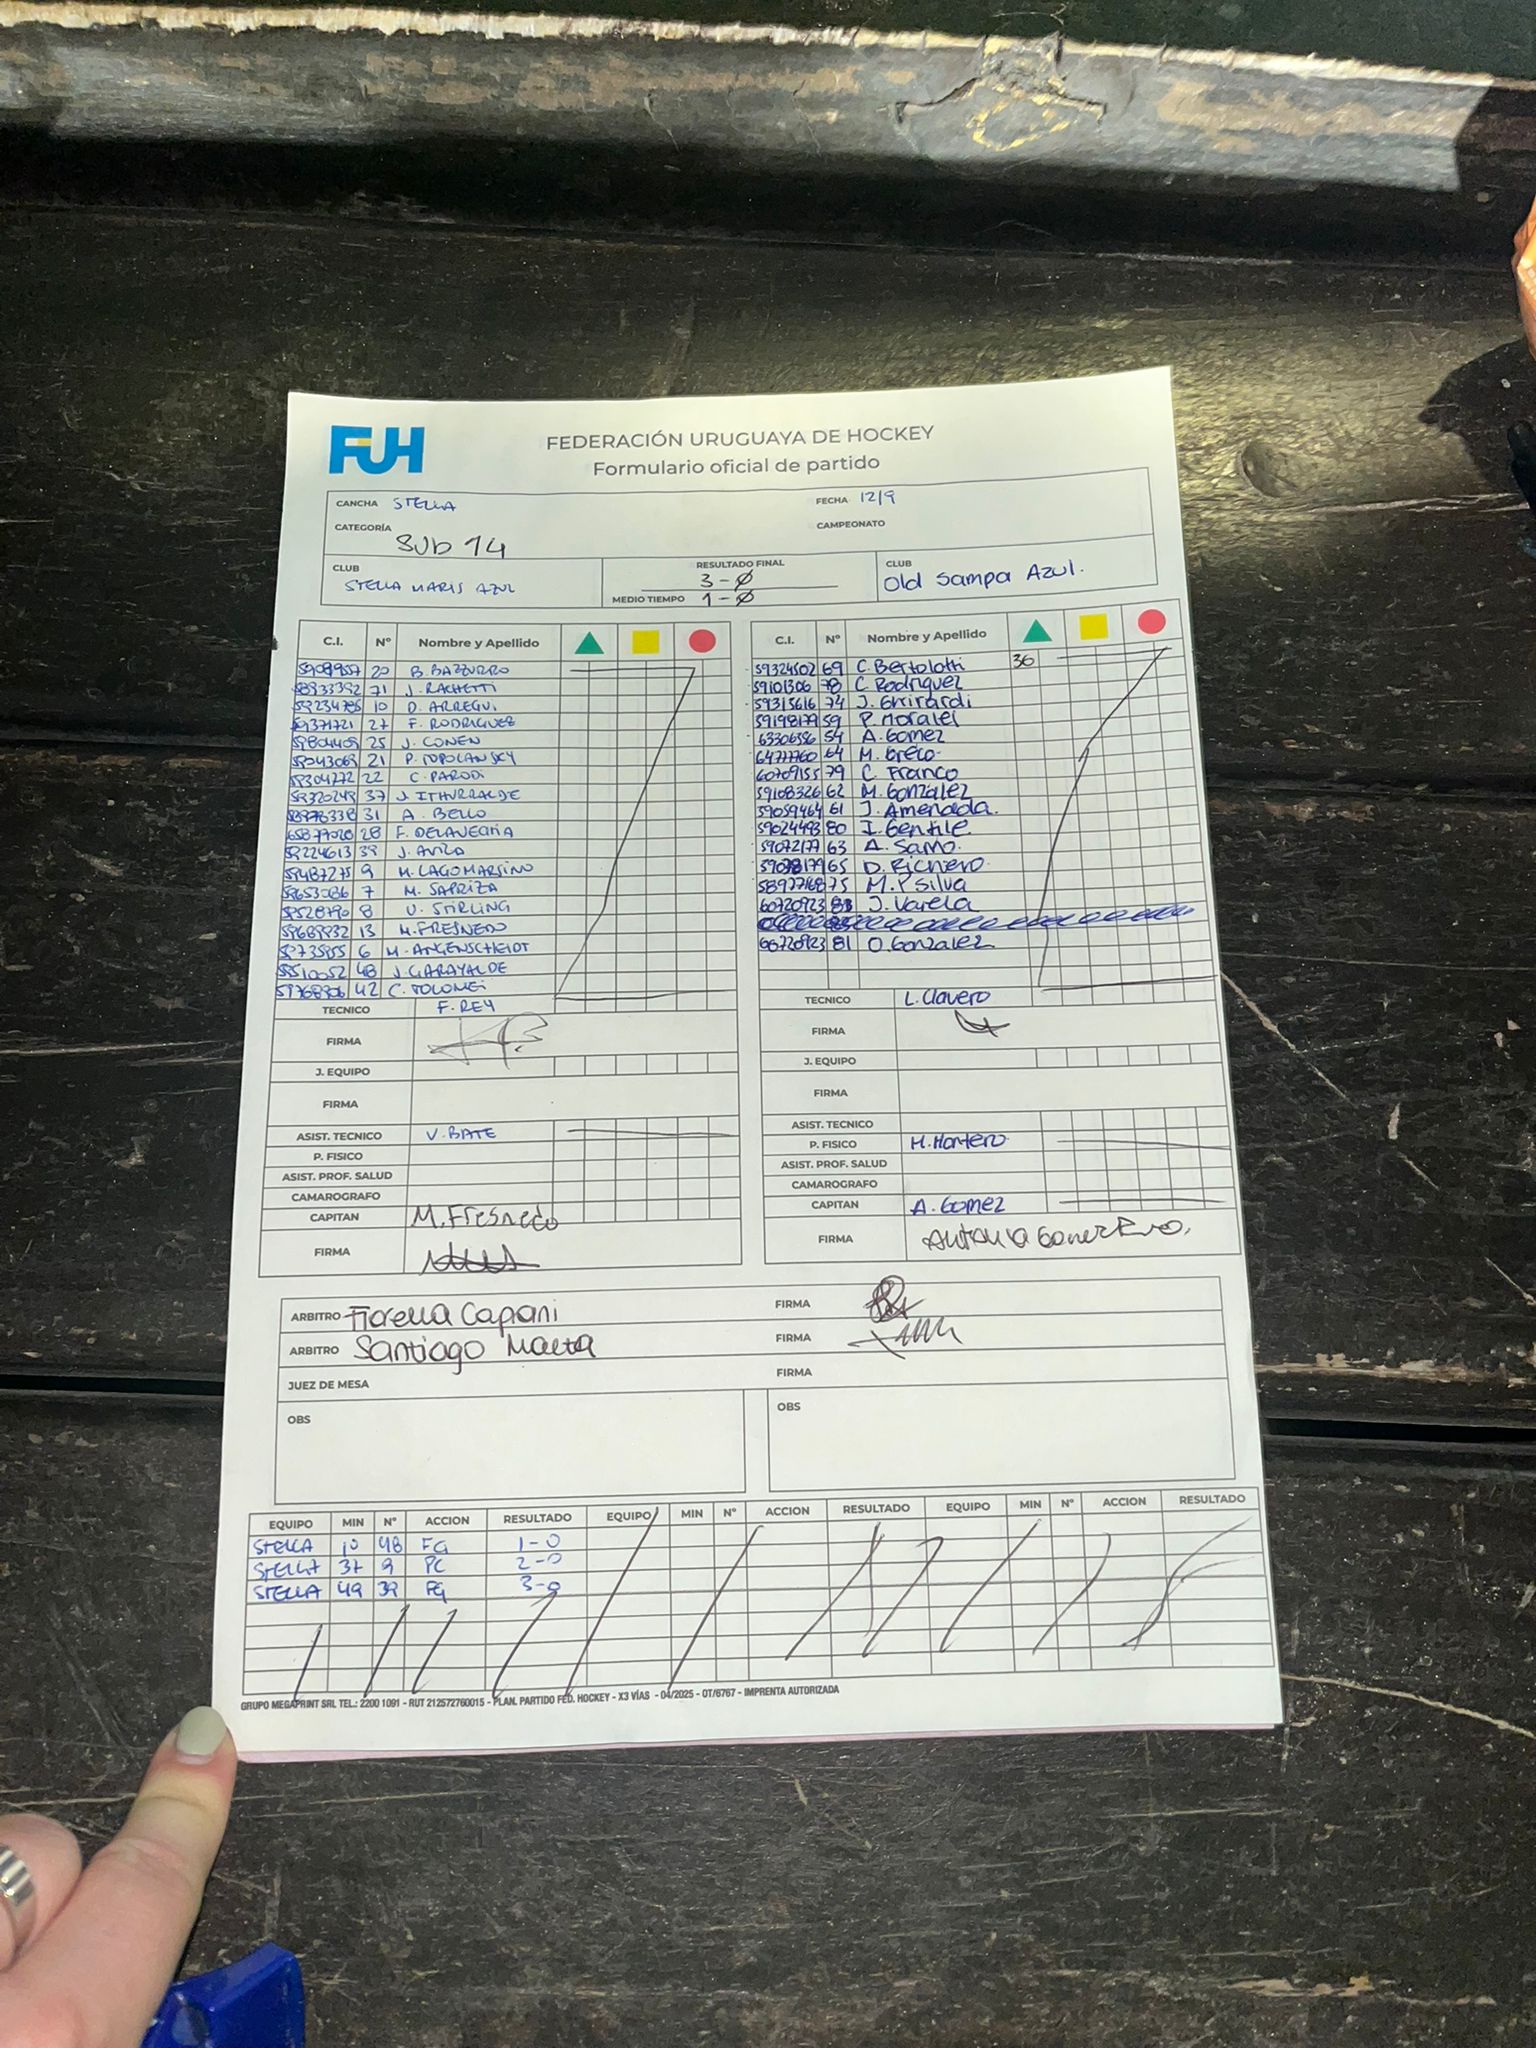 FUH
FEDERACIÓN URUGUAYA DE HOCKEY
Formulario oficial de partido
CANCHA STELLA FECHA 12/9
CATEGORÍA Sub 14 CAMPEONATO
CLUB STELLA MARIS AZUL RESULTADO FINAL 3-0 CLUB Old Sampa Azul.
MEDIO TIEMPO 1-0
C.I. Nº Nombre y Apellido C.I. Nº Nombre y Apellido
20 B. BAZZURRO 59324502 69 C. Bertolotti 36
71 J. RACHETTI 59101306 78 C. Rodriguez
10 D. ARREGUI 59315616 74 J.
27 F. RODRIGUES 59198179 59 P. Morales
25 J. CONEN 63306356 54 A. Gomez
21 P. TOPOLANSKY 64777760 64 M. Greco
22 C. PARODI 60709155 79 C. Franco
37 J. ITHURRALDE 59108326 62 M. Gonzalez
31 A. BELLO 59059464 61 J. Amenada.
28 F. 59024493 80 I. Gentile
59224613 39 J. AVILA 59072177 63 A. Samo.
59487275 9 M. LAGOMARSINO 65 D. Richiero
7 M. SAPRIZA 75 M.P Silva
8 U. STIRLING 60720923 J. Varela
13 M. FRESNEDO
6 M. ANGENSCHEIDT 81 O. Gonzalez
48 J. GARAYALDE
42 C. TOLOMEI
TECNICO F. REY TECNICO L. Clavero
FIRMA FIRMA
J. EQUIPO J. EQUIPO
FIRMA FIRMA
ASIST. TECNICO V. BATE ASIST. TECNICO
P. FISICO P. FISICO M. Montero
ASIST. PROF. SALUD ASIST. PROF. SALUD
CAMAROGRAFO CAMAROGRAFO
CAPITAN M. Fresnedo CAPITAN A. Gomez
FIRMA FIRMA
ARBITRO Fiorella Capiani FIRMA
ARBITRO Santiago FIRMA
JUEZ DE MESA FIRMA
OBS OBS
EQUIPO MIN Nº ACCION RESULTADO EQUIPO MIN Nº ACCION RESULTADO EQUIPO MIN Nº ACCION RESULTADO
STELLA 10 48 FG 1-0
STELLA 37 9 PC 2-0
STELLA 49 39 FG 3-0
GRUPO MEGAPRINT SRL TEL.: 2200 1091 - RUT 212572760015 - PLAN. PARTIDO FED. HOCKEY - X3 VÍAS - 04/2025 - OT/6767 - IMPRENTA AUTORIZADA